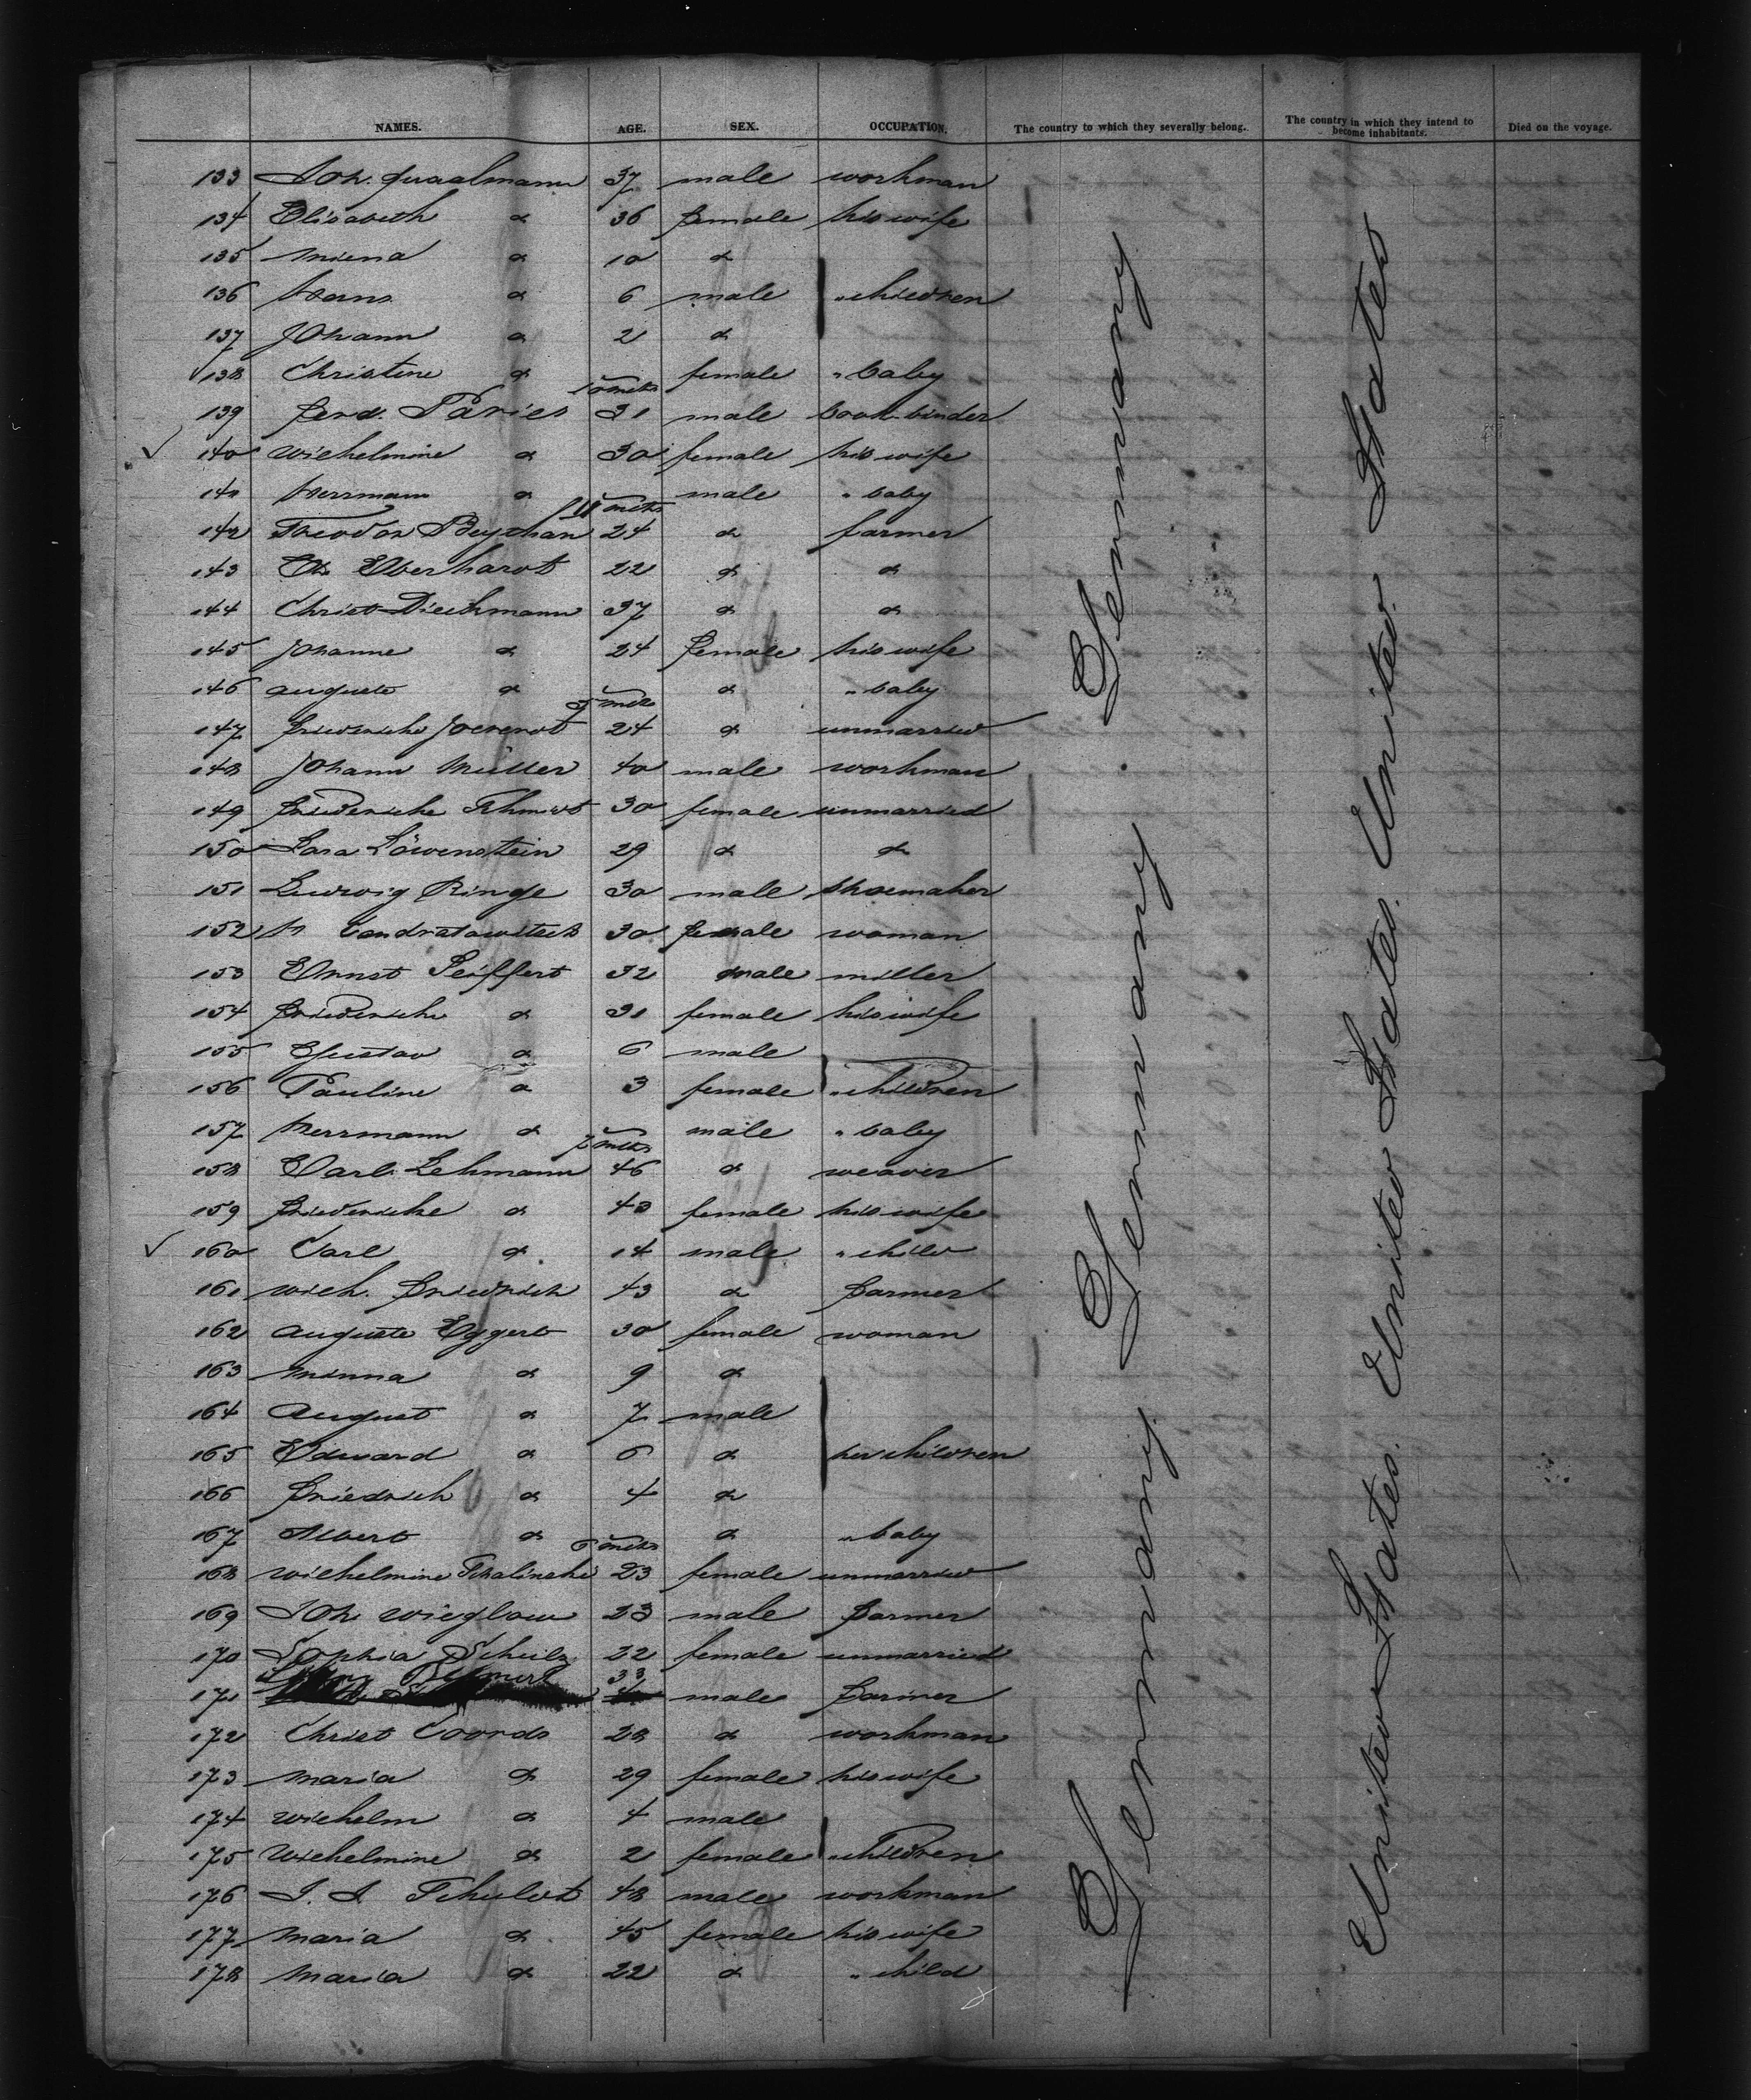 NAMES. AGE. SEX. OCCUPATION. The country to which they severally belong. The country in which they intend to become inhabitants. Died on the voyage.
133 Joh. Quaalmann 37 male workman
134 Elisabeth do 36 female his wife
135 Miena do 10 do
136 Hans do 6 male " children
137 Johann do 2 do
138 Christine do 10 mths female " baby
139 Ferd. Paries 31 male bookbinder
140 Wilhelmine do 30 female his wife
141 Herrmann do 11 mths male " baby
142 Theodor 24 do farmer
143 Eberhardt 22 do do
144 Christ Dieckmann 37 do do
145 Johanne do 24 female his wife
146 Auguste do mths do " baby
147 Friedericke 24 do unmarried
148 Johann Müller 40 male workman
149 Friedericke Schmidt 30 female unmarried
150 Sara Löwenstein 29 do do
151 Ludwig Ringe 30 male shoemaker
152 30 female woman
153 Ernst Seiffert 32 male miller
154 Friedericke do 31 female his wife
155 Gustav do 6 male
156 Pauline do 3 female " children
157 Herrmann do 7 mths male " baby
158 Carl Lehmann 46 do weaver
159 Friedericke do 43 female his wife
160 Carl do 14 male " child
161 Wilh. Friedrich 43 do farmer
162 Auguste Eggert 30 female woman
163 Minna do 9 do
164 August do 7 male
165 Edward do 6 do her children
166 Friedrich do 4 do
167 Albert do 6 mths do " baby
168 Wilhelmine 23 female unmarried
169 Joh Wieglow 23 male farmer
170 Sophia Schulz 22 female unmarried
171 33 male farmer
172 Christ Coords 28 do workman
173 Maria do 29 female his wife
174 Wilhelm do 4 male
175 Wilhelmine do 2 female " children
176 J. J. Schuldt 48 male workman
177 Maria do 45 female his wife
178 Maria do 22 do " child
Germany Germany Germany. Germany
United States. United States. United States. United States